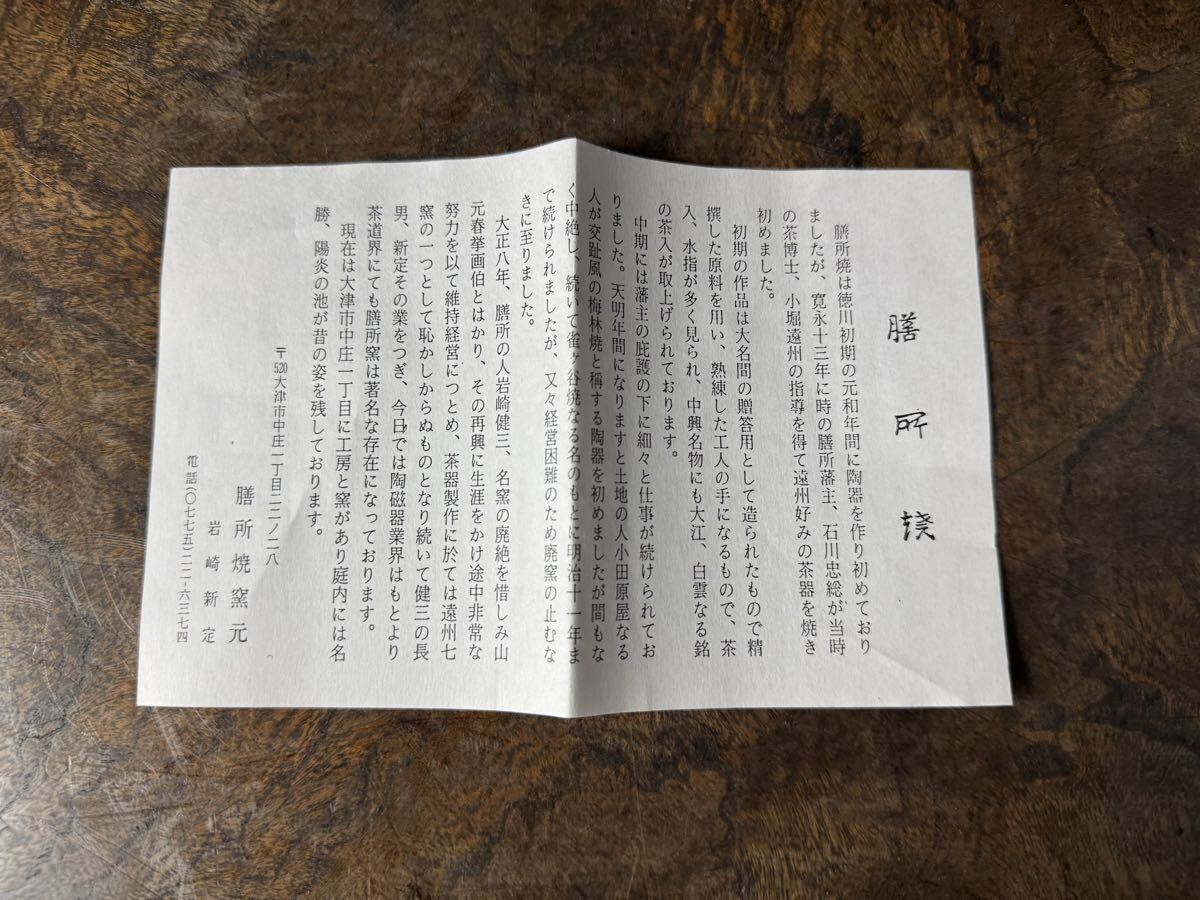 膳所焼
膳所焼は徳川初期の元和年間に陶器を作り初めており
ましたが、寛永十三年に時の膳所藩主、石川忠総が当時
の茶博士、小堀遠州の指導を得て遠州好みの茶器を焼き
初めました。
初期の作品は大名間の贈答用として造られたもので精
撰した原料を用い、熟練した工人の手になるもので、茶
入、水指が多く見られ、中興名物にも大江、白雲なる銘
の茶入が取上げられております。
中期には藩主の庇護の下に細々と仕事が続けられてお
りました。天明年間になりますと土地の人小田原屋なる
人が交趾風の梅林焼と稱する陶器を初めましたが間もな
く中絶し、続いて雀ヶ谷焼なる名のもとに明治十一年ま
で続けられましたが、又々経営困難のため廃窯の止むな
きに至りました。
大正八年、膳所の人岩崎健三、名窯の廃絶を惜しみ山
元春挙画伯とはかり、その再興に生涯をかけ途中非常な
努力を以て維持経営につとめ、茶器製作に於ては遠州七
窯の一つとして恥かしからぬものとなり続いて健三の長
男、新定その業をつぎ、今日では陶磁器業界はもとより
茶道界にても膳所窯は著名な存在になっております。
現在は大津市中庄一丁目に工房と窯があり庭内には名
勝、陽炎の池が昔の姿を残しております。
〒520大津市中庄一丁目二二ノ二八
膳所焼窯元
岩崎新定
電話(〇七七五)二二-六三七四